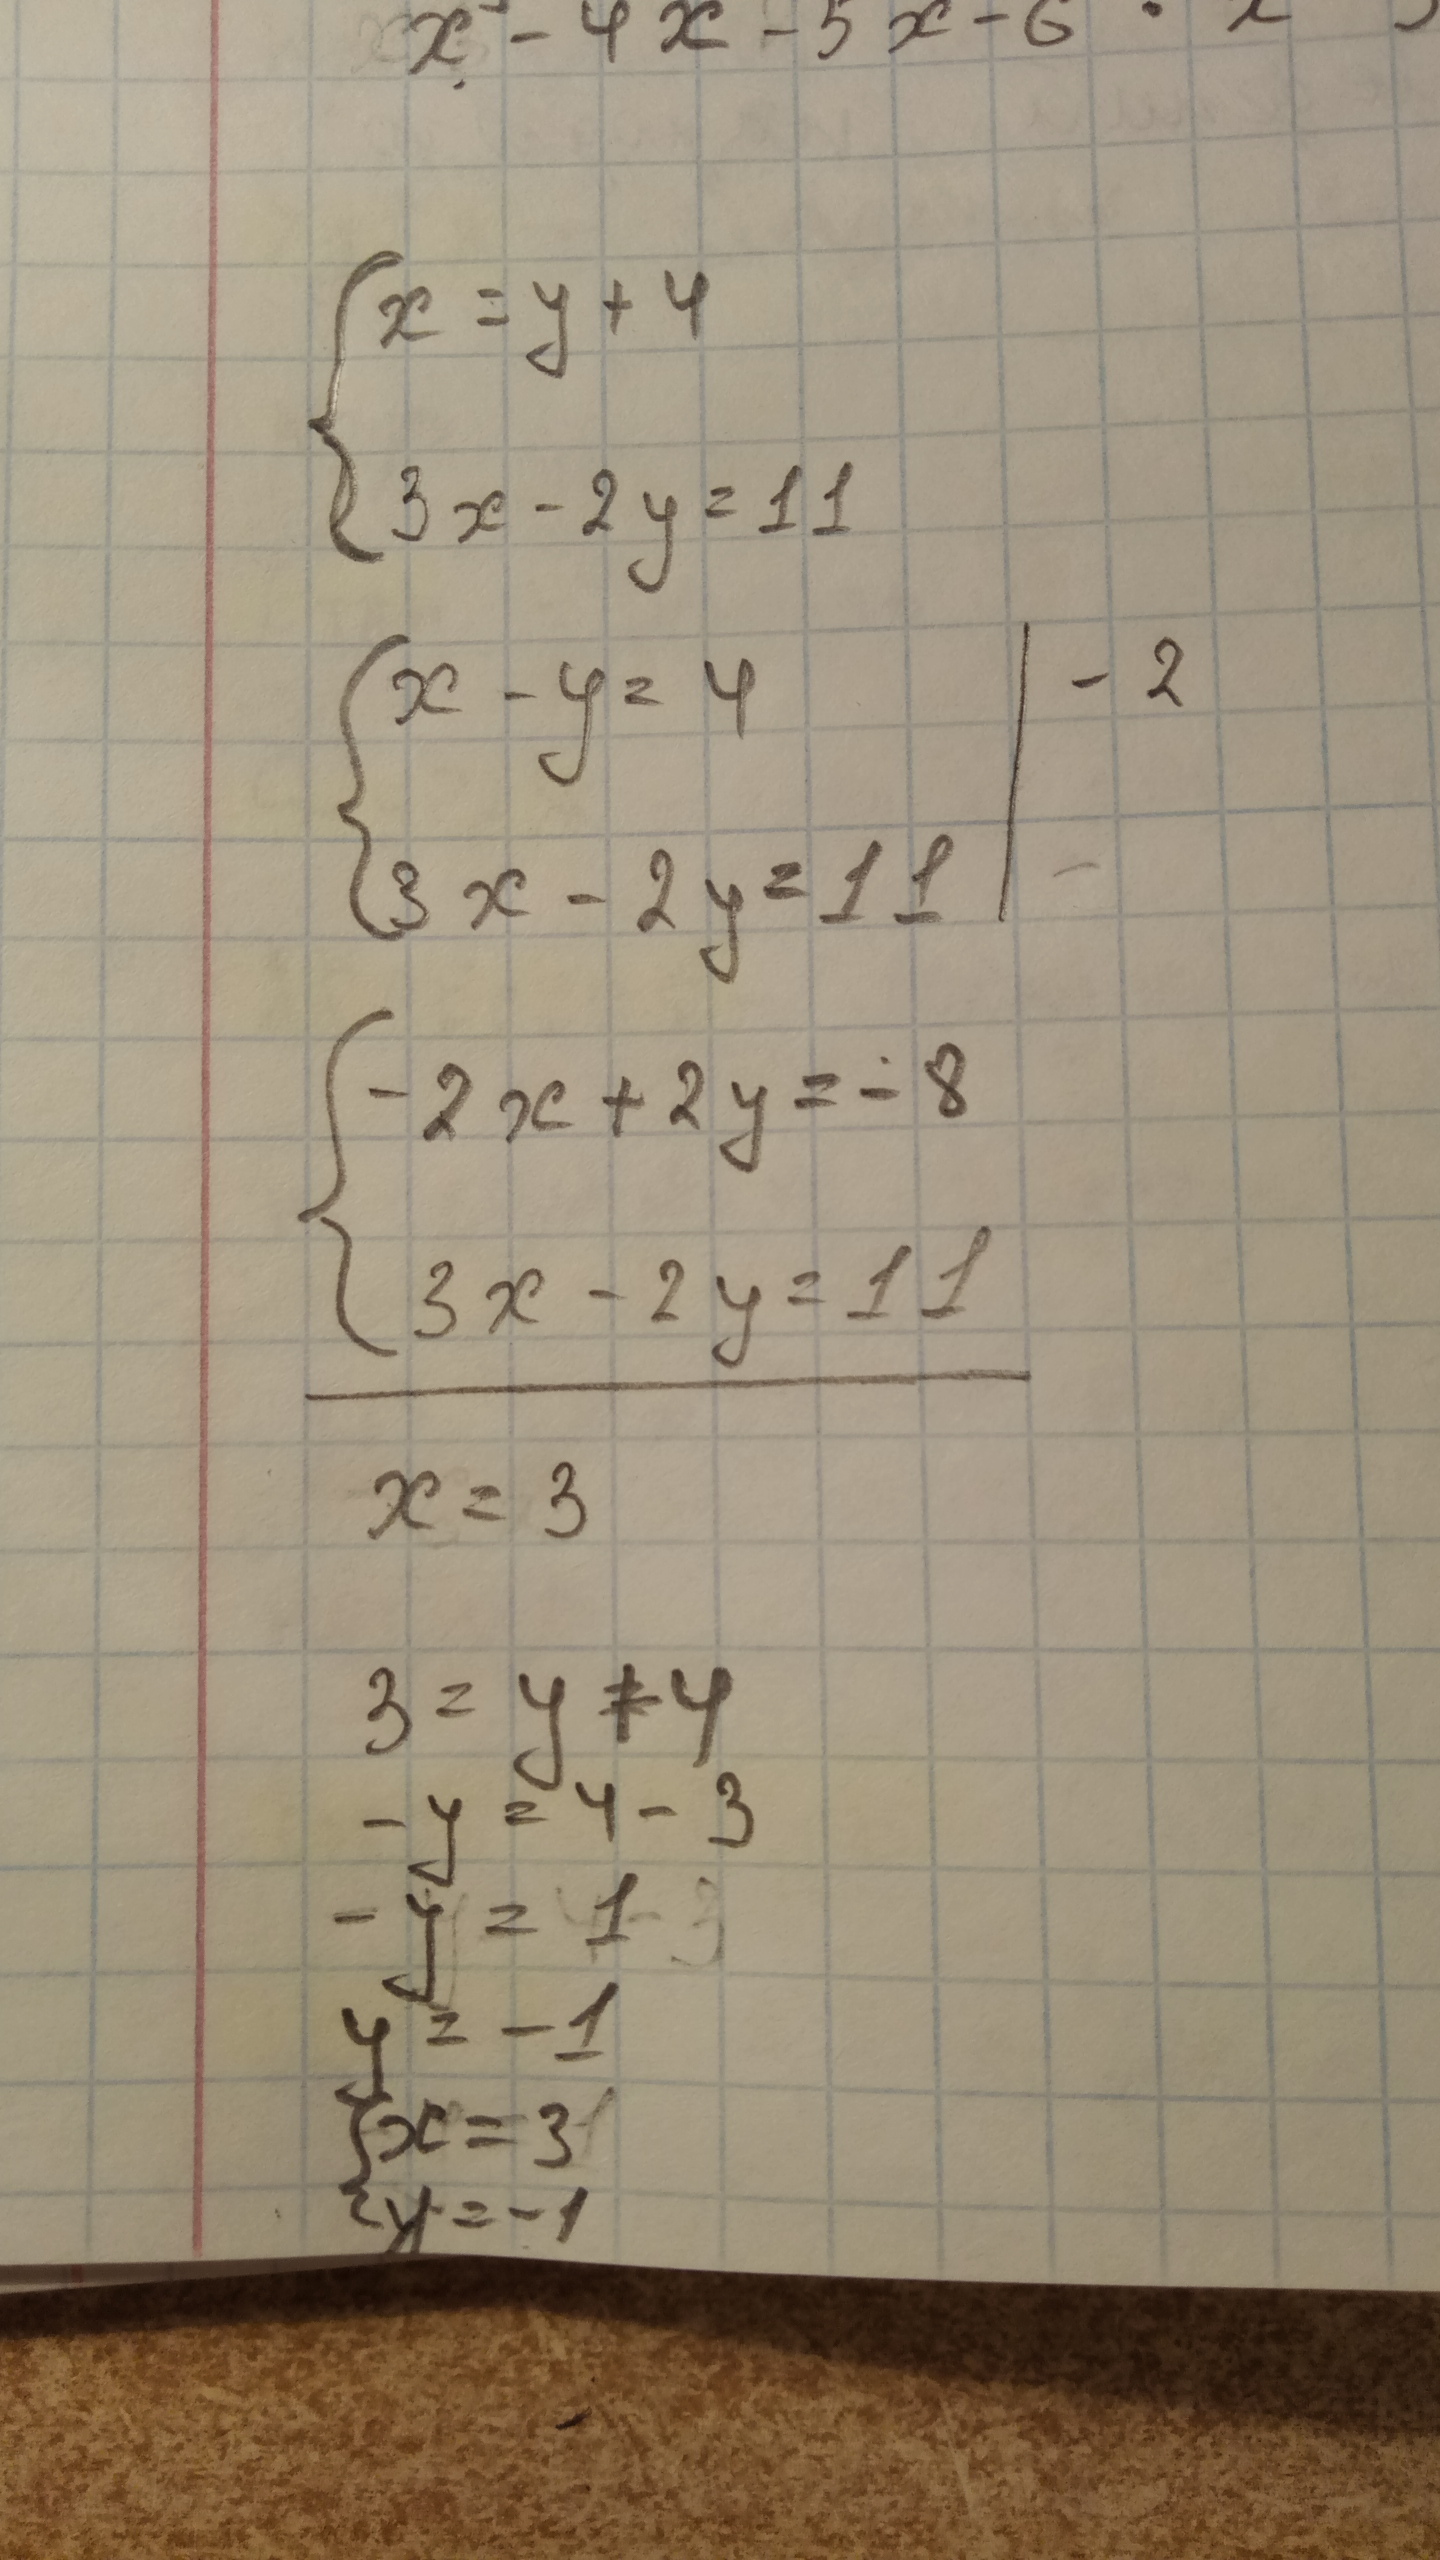 - 4x - 5x - 6
{ x = y + 4
3x - 2y = 11
{ x - y = 4 | - 2
3x - 2y = 11 | -
{ - 2x + 2y = - 8
3x - 2y = 11
x = 3
3 = y + 4
- y = 4 - 3
- y = 1
y = - 1
{ x = 3
y = - 1